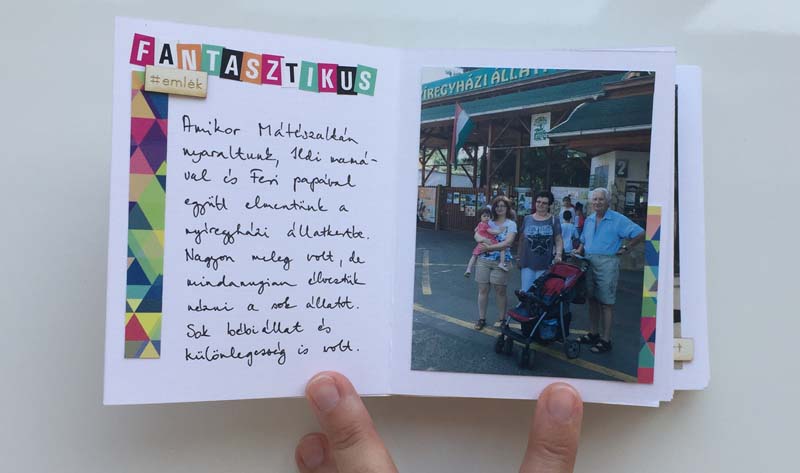 FANTASZTIKUS
#emlék
Amikor Mátészalkán
nyaraltunk, Ildi mamá-
val és Feri papával
együtt elmentünk a
nyíregyházi állatkertbe.
Nagyon meleg volt, de
mindannyian élveztük
nézni a sok állatot.
Sok bébiállat és
különlegesség is volt.
ÍREGYHÁZI ÁLLAT
2